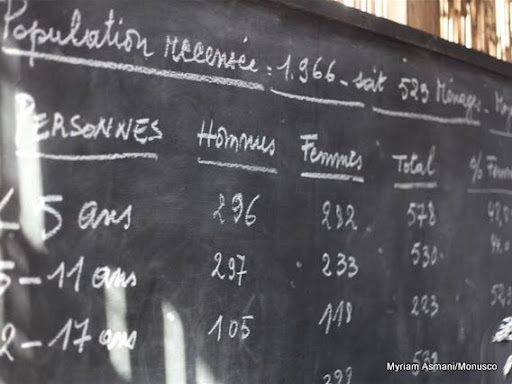 Population recensée : 1.966 - soit 529 Ménages -
PERSONNES Hommes Femmes Total %
< 5 ans 296 282 578
5 - 11 ans 297 233 530
2 - 17 ans 105 118 223
539
Myriam Asmani/Monusco